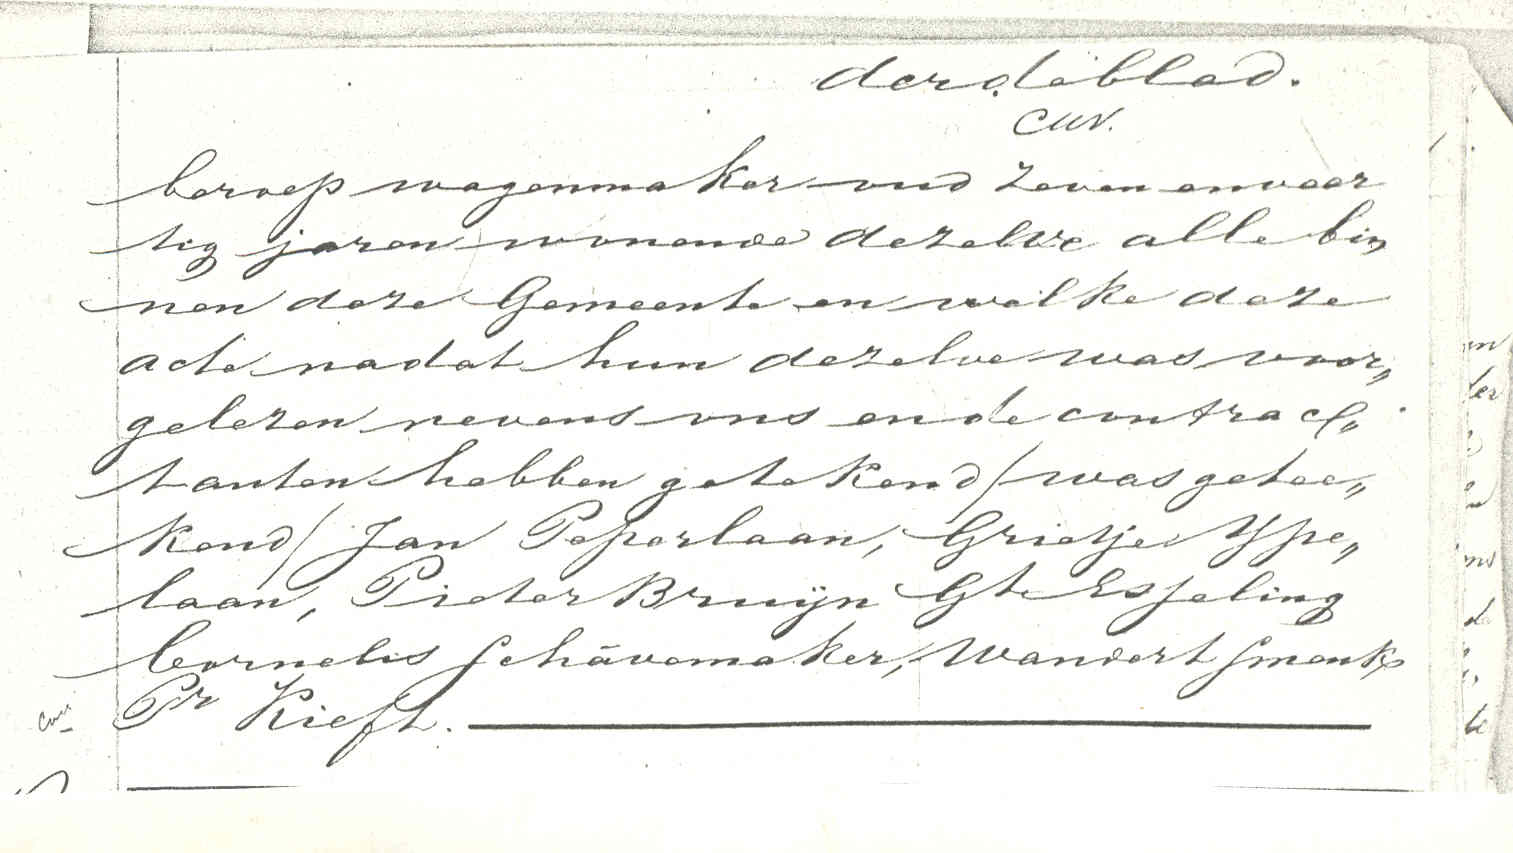 derde blad.
beroep wagenmaker oud Zeven en veer
tig jaren wonende dezelve alle bin„
nen deze Gemeente en welke deze
acte nadat hun dezelve was voor„
gelezen nevens ons en de contrac„
tanten hebben getekend / was getee„
kend / Jan Peperlaan, Grietje Ype„
laan, Pieter Bruijn Gt Esseling
Cornelis Schavemaker, Wandert Smenk,
Pr Kieft.